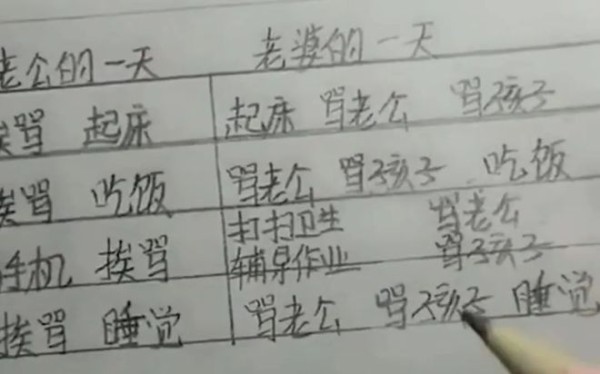 老公的一天 老婆的一天
挨骂 起床 起床 骂老公 骂孩子
挨骂 吃饭 骂老公 骂孩子 吃饭
手机 挨骂 打扫卫生 骂老公
辅导作业 骂孩子
挨骂 睡觉 骂老公 骂孩子 睡觉